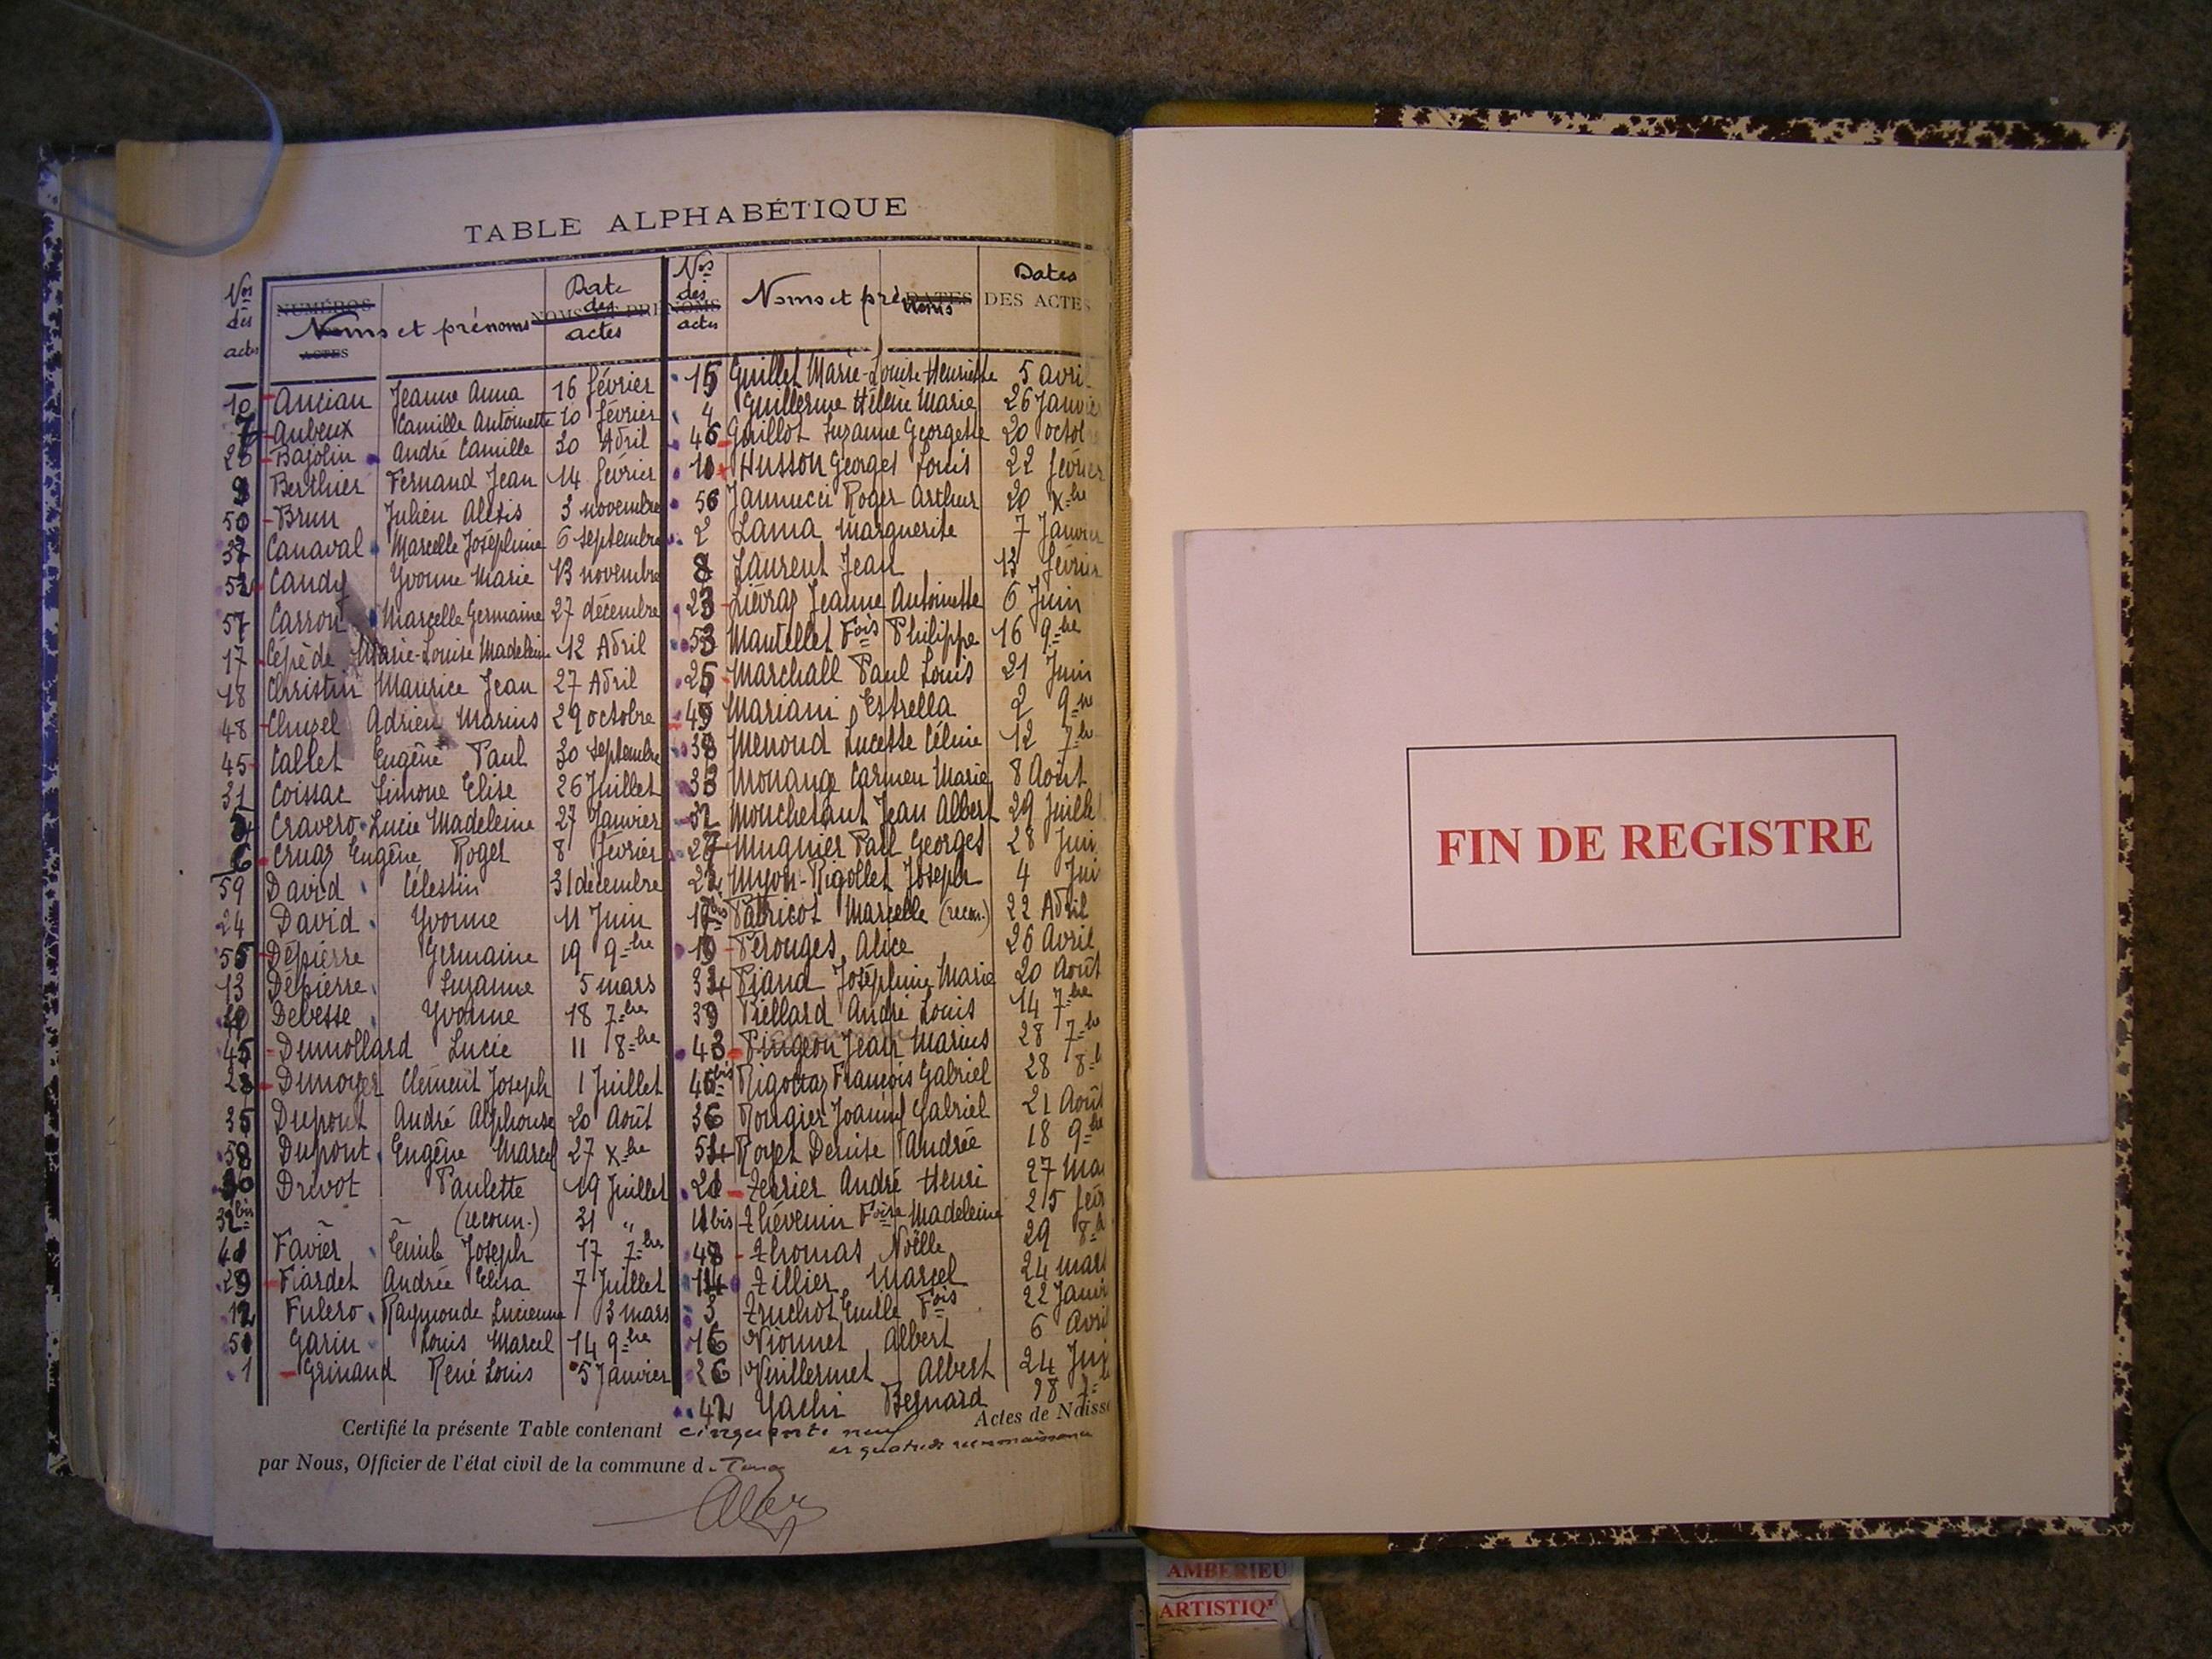 TABLE ALPHABÉTIQUE
Nos des actes
NUMÉROS
ACTES
Noms et prénoms
Date des actes
NOMS ET PRÉNOMS
Nos des actes
Noms et prénoms
DATES
Dates
DES ACTES
10 Ancian Jeanne Anna 16 février
7 Aubeux Camille Antoinette 10 février
20 Bajolin André Camille 30 Avril
9 Berthier Fernand Jean 14 février
50 Brun Julien Alexis 3 novembre
37 Canaval Marcelle Joséphine 6 septembre
52 Candy Yvonne Marie 13 novembre
57 Carron Marcelle Germaine 27 décembre
17 Cépède Marie-Louise Madeleine 12 Avril
18 Christin Maurice Jean 27 Avril
48 Adrien Marius 29 octobre
45 Collet Eugène Paul 30 septembre
31 Coissac Simone Elise 26 Juillet
Cravero Lucie Madeleine 27 Janvier
6 Cruaz Eugène Roger 8 février
59 David Célestin 31 décembre
24 David Yvonne 11 Juin
55 Dépierre Germaine 19 9-bre
13 Dépierre Suzanne 5 mars
40 Debesse Yvonne 18 7-bre
45 Dumollard Lucie 11 8-bre
28 Dunoyer Clément Joseph 1 Juillet
35 Dupont André Alphonse 20 Août
58 Dupont Eugène Marcel 27 x-bre
30 Drevot Paulette 19 Juillet
32 bis (reconn.) 31 "
41 Favier Emile Joseph 17 7-bre
29 Fiardet Andrée Elisa 7 Juillet
12 Fulero Raymonde Lucienne 3 mars
51 Garin Louis Marcel 14 9-bre
1 Grinand René Louis 5 Janvier
15 Guillet Marie-Louise Henriette 5 avri
4 Guillerme Hélène Marie 26 Janvie
46 Guillot Suzanne Georgette 20 octob
10 Husson Georges Louis 22 février
56 Jannucci Roger Arthur 20 x-bre
2 Lama Marguerite 7 Janvier
8 Laurent Jean 13 février
23 Liévraz Jeanne Antoinette 6 Juin
53 Mantellet Fois Philippe 16 9-bre
25 Marchall Paul Louis 21 Juin
49 Mariani Estrella 2 9-bre
38 Menoud Lucette Céline 12 7-bre
33 Monange Carmen Marie 8 Août
32 Monchetant Jean Albert 29 Juille
27 Mugnier Paul Georges 28 Jui
22 Muyon-Rigollet Joseph 4 Jui
17 bis Patricot Marcelle (recon.) 22 Avril
19 Pérouges Alice 26 Avril
34 Piand Joséphine Marie 20 Août
39 Piellard André Louis 14 7-bre
43 Pingeon Jean Marius 28 7-b
45 bis François Gabriel 28 8-b
36 Rougier Joannes Gabriel 21 Août
54 Royet Denise Andrée 18 9-bre
21 Terrier André Henri 27 Mai
11 bis Thévenin Foise Madeleine 25 fév
48 Thomas Noëlle 29 8-b
14 Tillier Marcel 24 mars
3 Truchot Emile Fois 22 Janvi
16 Vionnet Albert 6 Avril
26 Vuillermet Albert 24 Jui
42 Yachi Bernard
Certifié la présente Table contenant cinquante neuf Actes de Naiss
et quatre de reconnaissance
par Nous, Officier de l'état civil de la commune d
FIN DE REGISTRE
AMBERIEU
ARTISTIQ